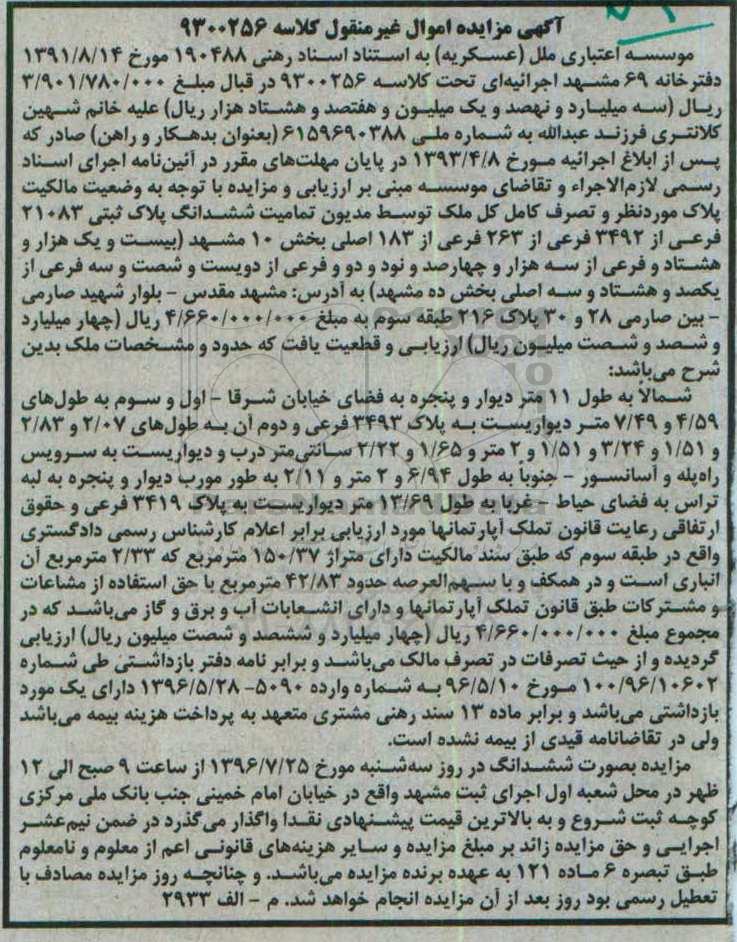 آگهی مزایده اموال غیرمنقول کلاسه ۹۳۰۰۲۵۶
موسسه اعتباری ملل (عسکریه) به استناد اسناد رهنی ۱۹۰۴۸۸ مورخ ۱۳۹۱/۸/۱۴
دفترخانه ۶۹ مشهد اجرائیه‌ای تحت کلاسه ۹۳۰۰۲۵۶ در قبال مبلغ ۳/۹۰۱/۷۸۰/۰۰۰
ریال (سه میلیارد و نهصد و یک میلیون و هفتصد و هشتاد هزار ریال) علیه خانم شهین
کلانتری فرزند عبدالله به شماره ملی ۶۱۵۹۶۹۰۳۸۸ (بعنوان بدهکار و راهن) صادر که
پس از ابلاغ اجرائیه مورخ ۱۳۹۳/۴/۸ در پایان مهلت‌های مقرر در آئین‌نامه اجرای اسناد
رسمی لازم‌الاجراء و تقاضای موسسه مبنی بر ارزیابی و مزایده با توجه به وضعیت مالکیت
پلاک موردنظر و تصرف کامل کل ملک توسط مدیون تمامیت ششدانگ پلاک ثبتی ۲۱۰۸۳
فرعی از ۳۴۹۲ فرعی از ۲۶۳ فرعی از ۱۸۳ اصلی بخش ۱۰ مشهد (بیست و یک هزار و
هشتاد و فرعی از سه هزار و چهارصد و نود و دو و فرعی از دویست و شصت و سه فرعی از
یکصد و هشتاد و سه اصلی بخش ده مشهد) به آدرس: مشهد مقدس – بلوار شهید صارمی
– بین صارمی ۲۸ و ۳۰ پلاک ۲۱۶ طبقه سوم به مبلغ ۴/۶۶۰/۰۰۰/۰۰۰ ریال (چهار میلیارد
و شصد و شصت میلیون ریال) ارزیابی و قطعیت یافت که حدود و مشخصات ملک بدین
شرح می‌باشد:
شمالاً به طول ۱۱ متر دیوار و پنجره به فضای خیابان شرقا – اول و سوم به طول‌های
۴/۵۹ و ۷/۴۹ متر دیواریست به پلاک ۳۴۹۳ فرعی و دوم آن به طول‌های ۲/۰۷ و ۲/۸۳
و ۱/۵۱ و ۳/۲۴ و ۱/۵۱ و ۲ متر و ۱/۶۵ و ۲/۲۲ سانتی‌متر درب و دیواریست به سرویس
راه‌پله و آسانسور – جنوبا به طول ۶/۹۴ و ۲ متر و ۲/۱۱ به طور مورب دیوار و پنجره به لبه
تراس به فضای حیاط – غربا به طول ۱۳/۶۹ متر دیواریست به پلاک ۳۴۱۹ فرعی و حقوق
ارتفاقی رعایت قانون تملک آپارتمانها مورد ارزیابی برابر اعلام کارشناس رسمی دادگستری
واقع در طبقه سوم که طبق سند مالکیت دارای متراژ ۱۵۰/۳۷ مترمربع که ۲/۳۳ مترمربع آن
انباری است و در همکف و با سهم‌العرصه حدود ۴۲/۸۳ مترمربع با حق استفاده از مشاعات
و مشترکات طبق قانون تملک آپارتمانها و دارای انشعابات آب و برق و گاز می‌باشد که در
مجموع مبلغ ۴/۶۶۰/۰۰۰/۰۰۰ ریال (چهار میلیارد و ششصد و شصت میلیون ریال) ارزیابی
گردیده و از حیث تصرفات در تصرف مالک می‌باشد و برابر نامه دفتر بازداشتی طی شماره
۱۰۰/۹۶/۱۰۶۰۲ مورخ ۹۶/۵/۱۰ به شماره وارده ۵۰۹۰– ۱۳۹۶/۵/۲۸ دارای یک مورد
بازداشتی می‌باشد و برابر ماده ۱۳ سند رهنی مشتری متعهد به پرداخت هزینه بیمه می‌باشد
ولی در تقاضانامه قیدی از بیمه نشده است.
مزایده بصورت ششدانگ در روز سه‌شنبه مورخ ۱۳۹۶/۷/۲۵ از ساعت ۹ صبح الی ۱۲
ظهر در محل شعبه اول اجرای ثبت مشهد واقع در خیابان امام خمینی جنب بانک ملی مرکزی
کوچه ثبت شروع و به بالاترین قیمت پیشنهادی نقدا واگذار می‌گردد در ضمن نیم‌عشر
اجرایی و حق مزایده زائد بر مبلغ مزایده و سایر هزینه‌های قانونی اعم از معلوم و نامعلوم
طبق تبصره ۶ ماده ۱۲۱ به عهده برنده مزایده می‌باشد. و چنانچه روز مزایده مصادف با
تعطیل رسمی بود روز بعد از آن مزایده انجام خواهد شد. م – الف ۲۹۳۳